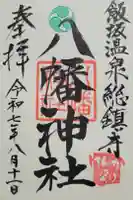 飯坂温泉総鎮守
八幡神社
奉拝
令和七年八月十一日